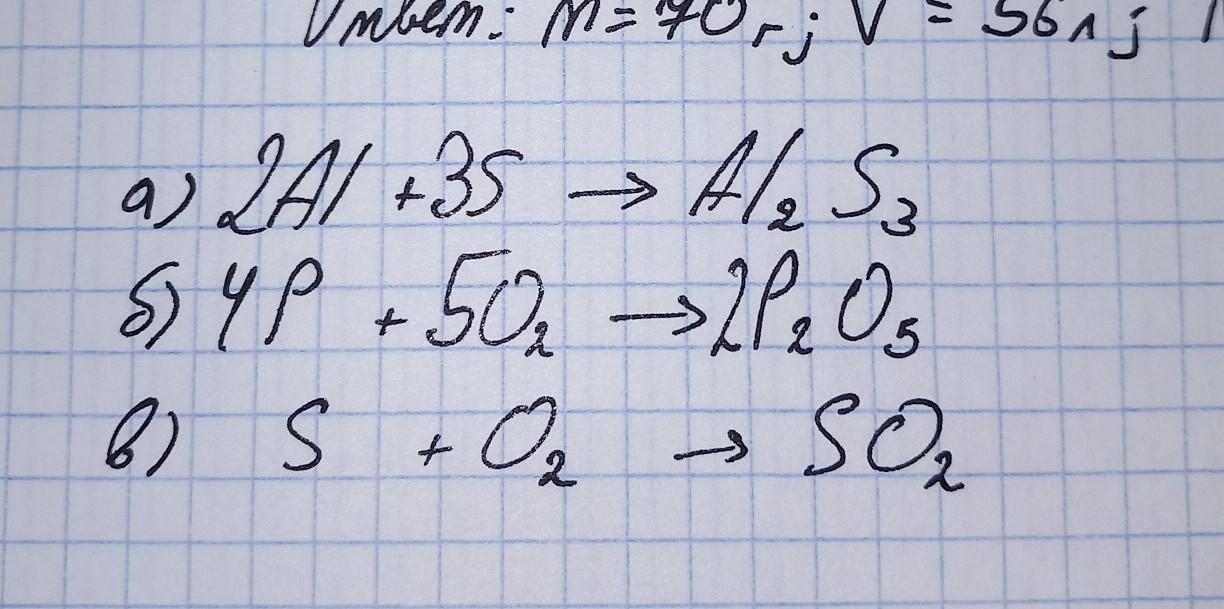 Ответ: m = 70 г; V = 56 л;
а) 2Al + 3S → Al₂S₃
б) 4P + 5O₂ → 2P₂O₅
в) S + O₂ → SO₂